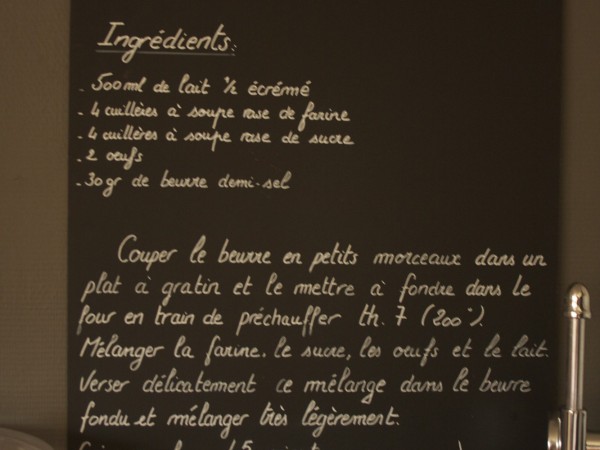 Ingrédients:
- 500ml de lait ½ écrémé
- 4 cuillères à soupe rase de farine
- 4 cuillères à soupe rase de sucre
- 2 oeufs
- 30gr de beurre demi-sel
Couper le beurre en petits morceaux dans un
plat à gratin et le mettre à fondre dans le
four en train de préchauffer th. 7 (200°).
Mélanger la farine. le sucre, les oeufs et le lait.
Verser délicatement ce mélange dans le beurre
fondu et mélanger très légèrement.